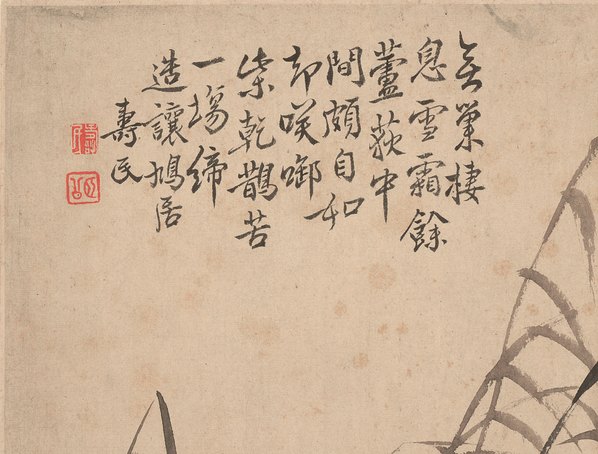 無巢棲
息雪霜餘
蘆荻中
間頗自如
却咲啣
柴乾鵲苦
一場締
造讓鳩居
壽民